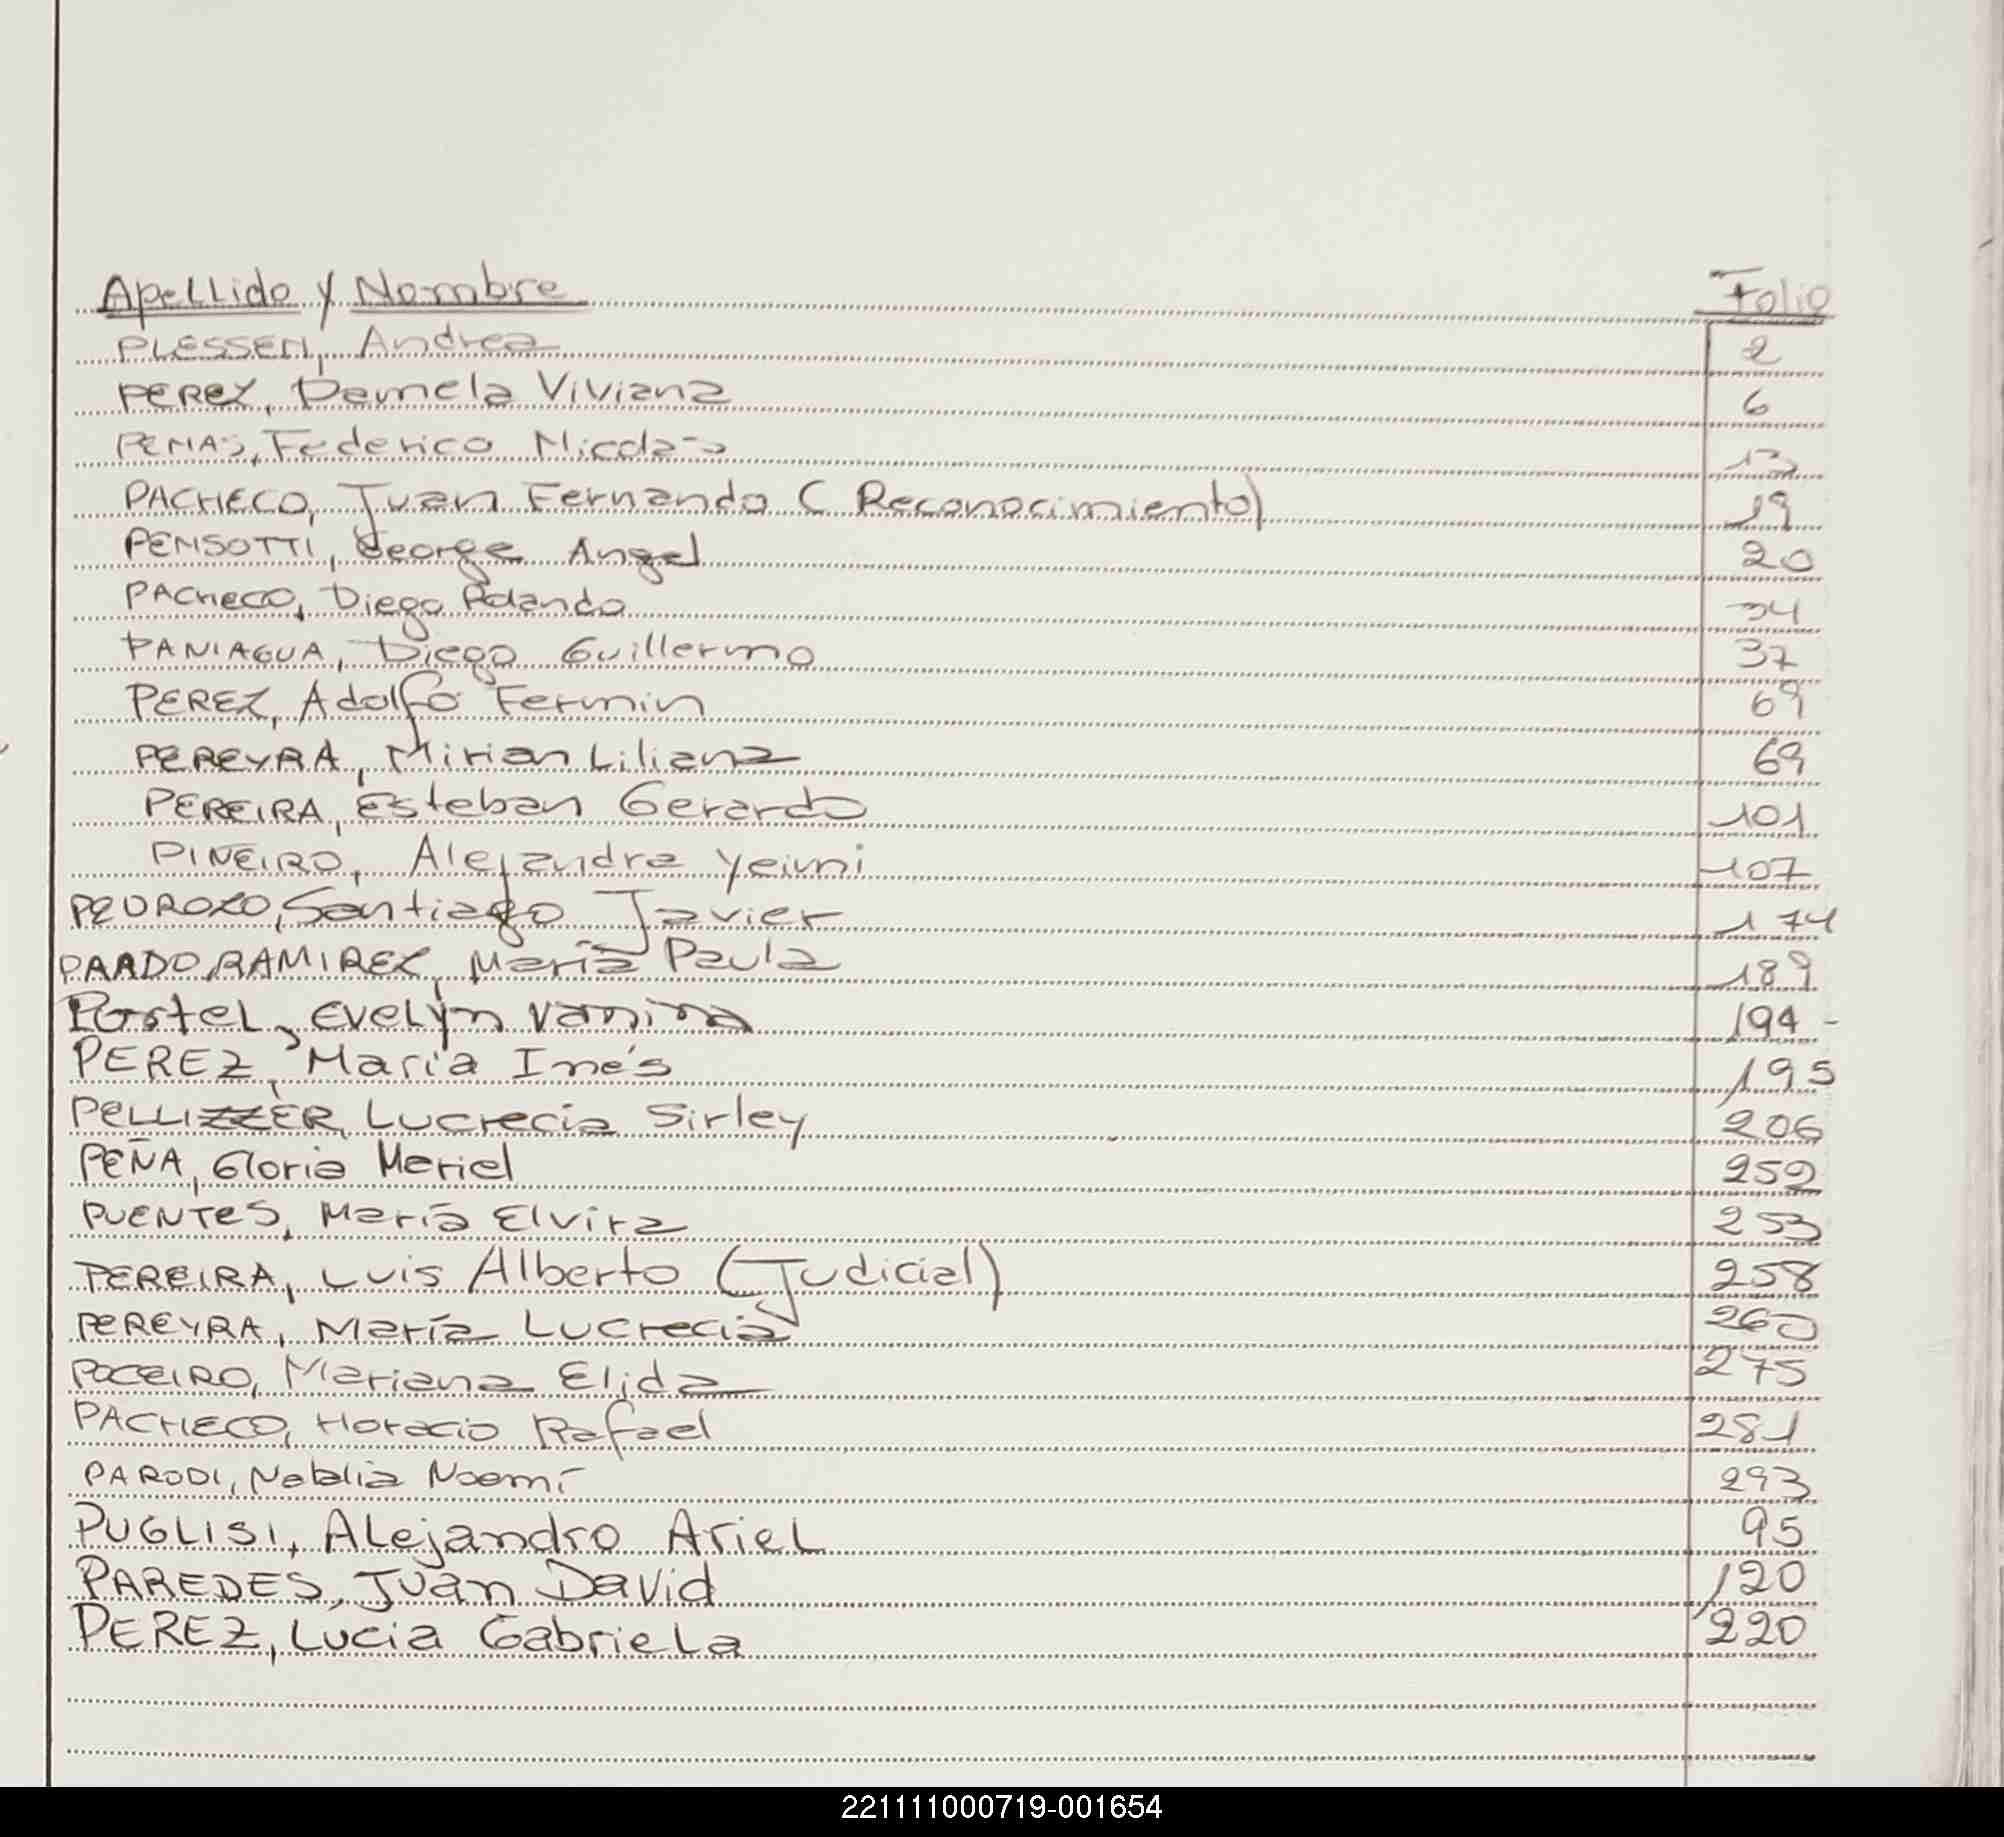 Apellido y Nombre Folio
PLESSEN, Andrea 2
PEREZ, Pamela Viviana 6
PENAS, Federico Nicolas 13
PACHECO, Juan Fernando (Reconocimiento) 19
PENSOTTI, George Angel 20
PACHECO, Diego Rolando 34
PANIAGUA, Diego Guillermo 37
PEREZ, Adolfo Fermin 69
PEREYRA, Mirian Liliana 69
PEREIRA, Esteban Gerardo 101
PINEIRO, Alejandra Yeimi 107
PEDROZO, Santiago Javier 174
PARDO, RAMIREZ, María Paula 189
Postel, Evelyn Vanina 194 -
PEREZ, María Inés 195
PELLIZZER, Lucrecia Sirley 206
PEÑA, Gloria Mariel 252
PUENTES, María Elvira 253
PEREIRA, Luis Alberto (Judicial) 258
PEREYRA, María Lucrecia 260
POCEIRO, Mariana Elida 275
PACHECO, Horacio Rafael 281
PARODI, Natalia Noemí 293
PUGLISI, Alejandro Ariel 95
PAREDES, Juan David 120
PEREZ, Lucia Gabriela 220
221111000719-001654